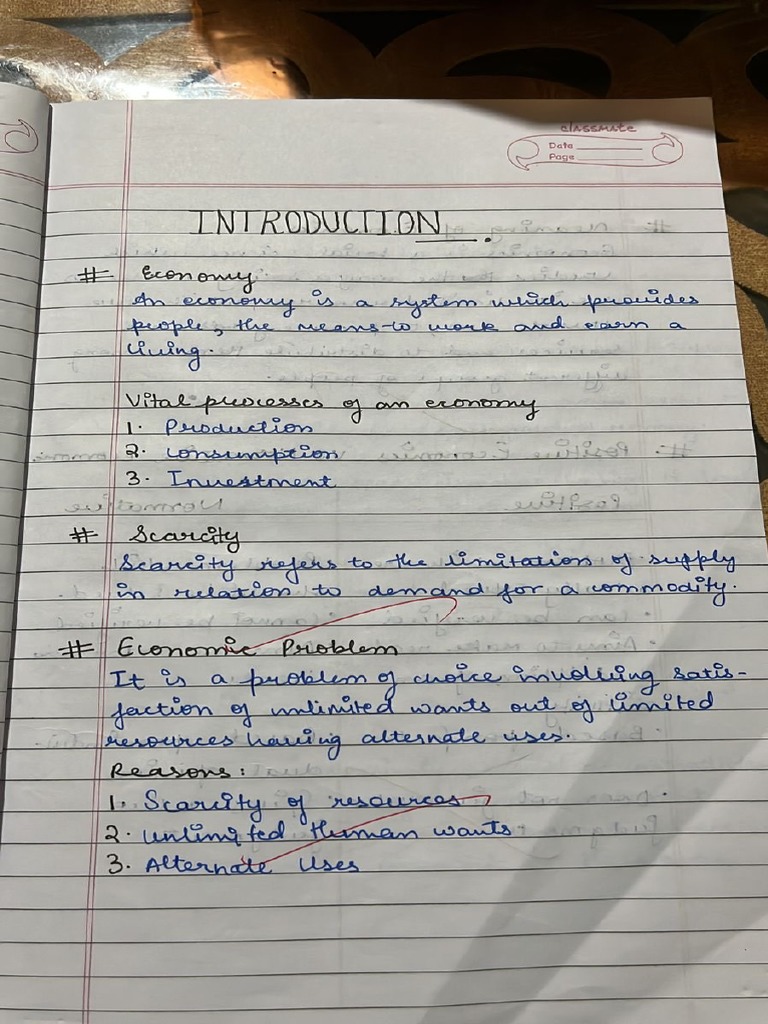 classmate
Date
Page
INTRODUCTION.
# Economy
An economy is a system which provides
people, the means to work and earn a
living.
Vital processes of an economy
1. Production
2. Consumption
3. Investment
# Scarcity
Scarcity refers to the limitation of supply
in relation to demand for a commodity.
# Economic Problem
It is a problem of choice involving satis-
faction of unlimited wants out of limited
resources having alternate uses.
Reasons:
1. Scarcity of resources
2. Unlimited Human wants
3. Alternate Uses